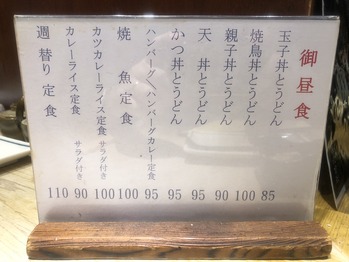 御昼食
玉子丼とうどん 85
焼鳥丼とうどん 100
親子丼とうどん 90
天丼とうどん 95
かつ丼とうどん 95
ハンバーグ／ハンバーグカレー定食 95
焼魚定食 100
カツカレーライス定食 サラダ付き 100
カレーライス定食 サラダ付き 90
週替り定食 110